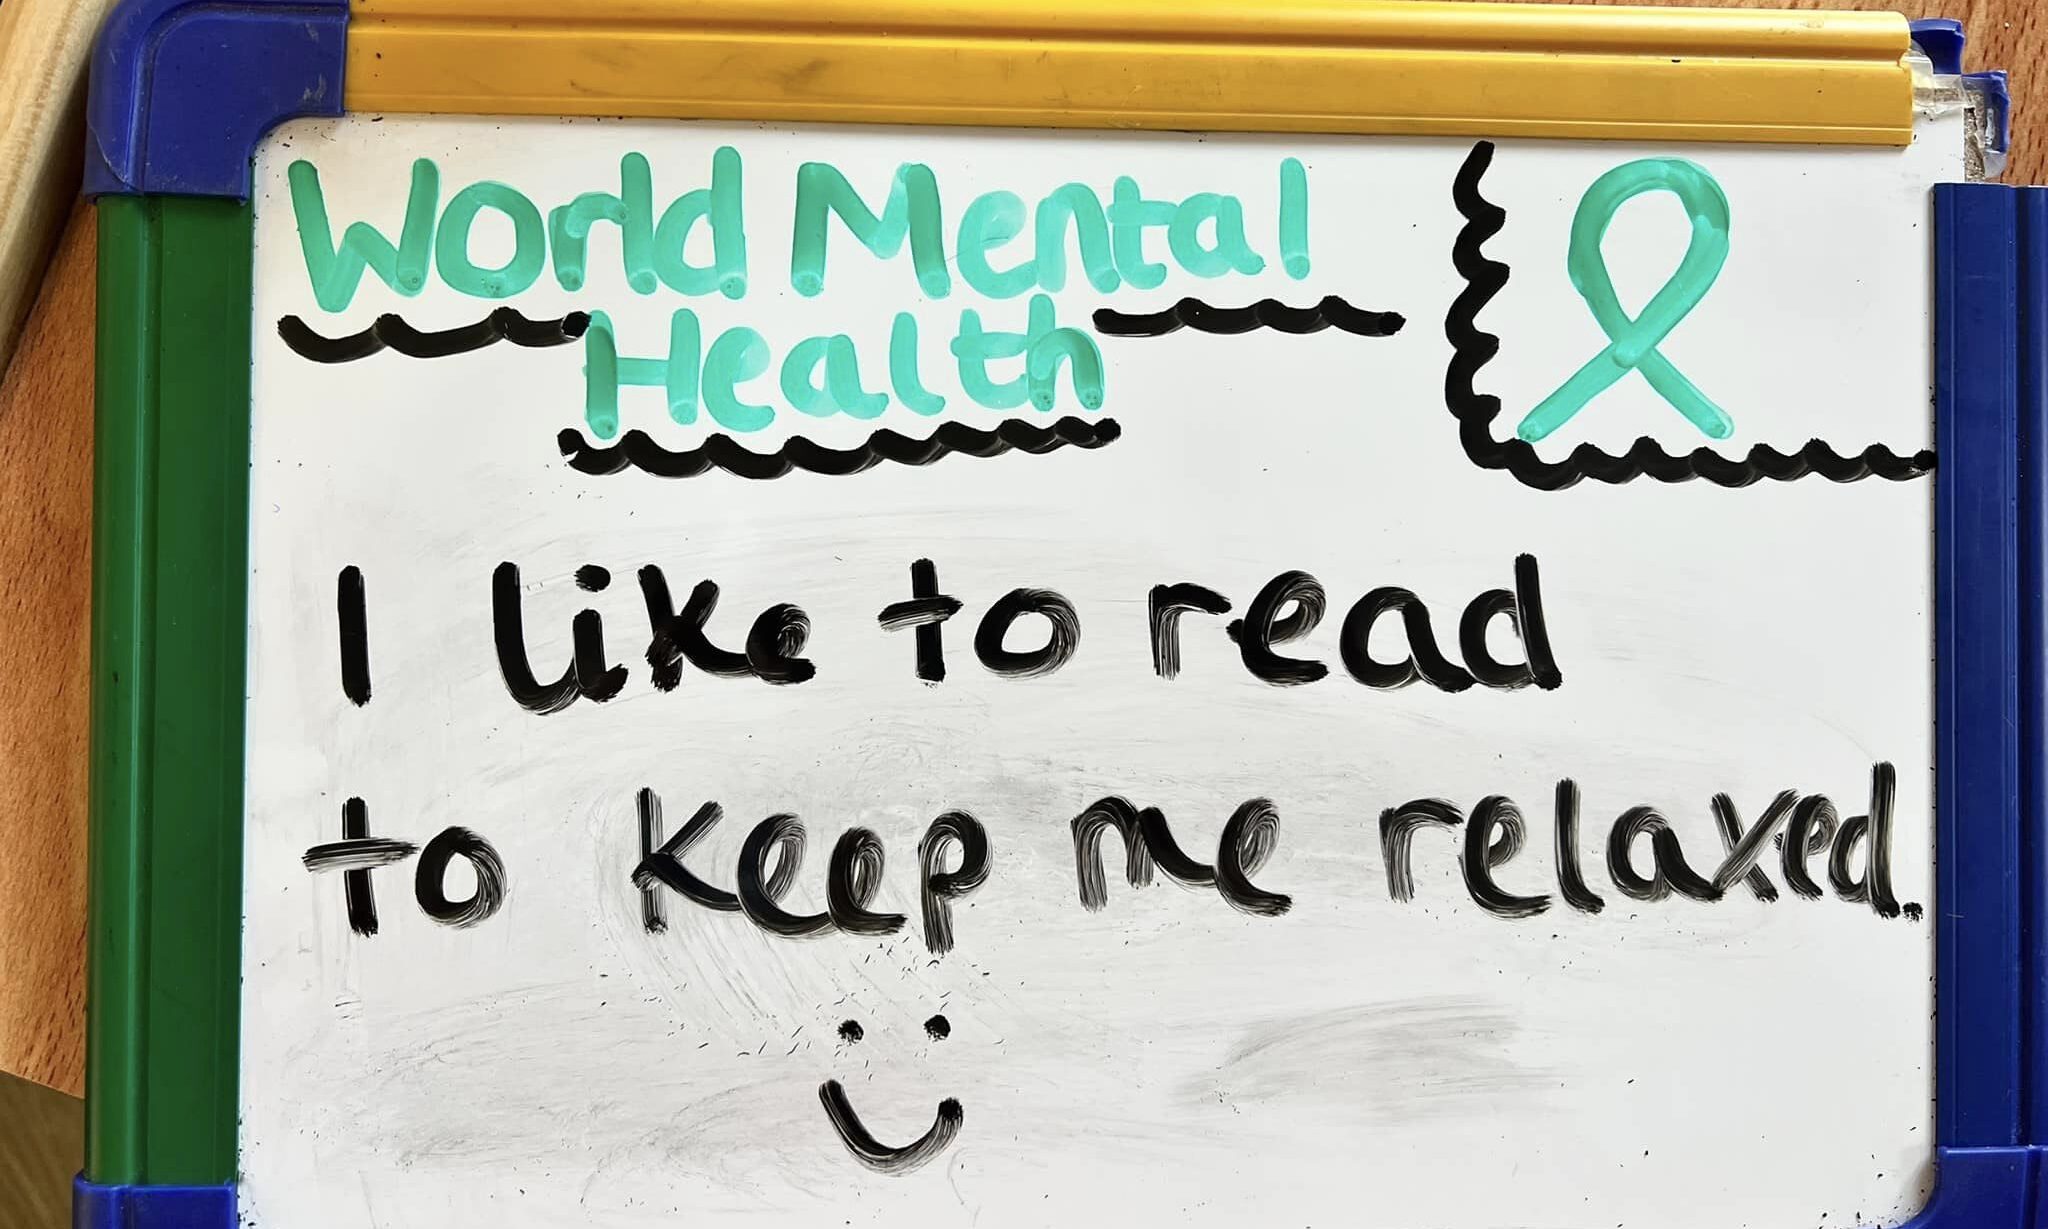 World Mental
Health
I like to read
to keep me relaxed.